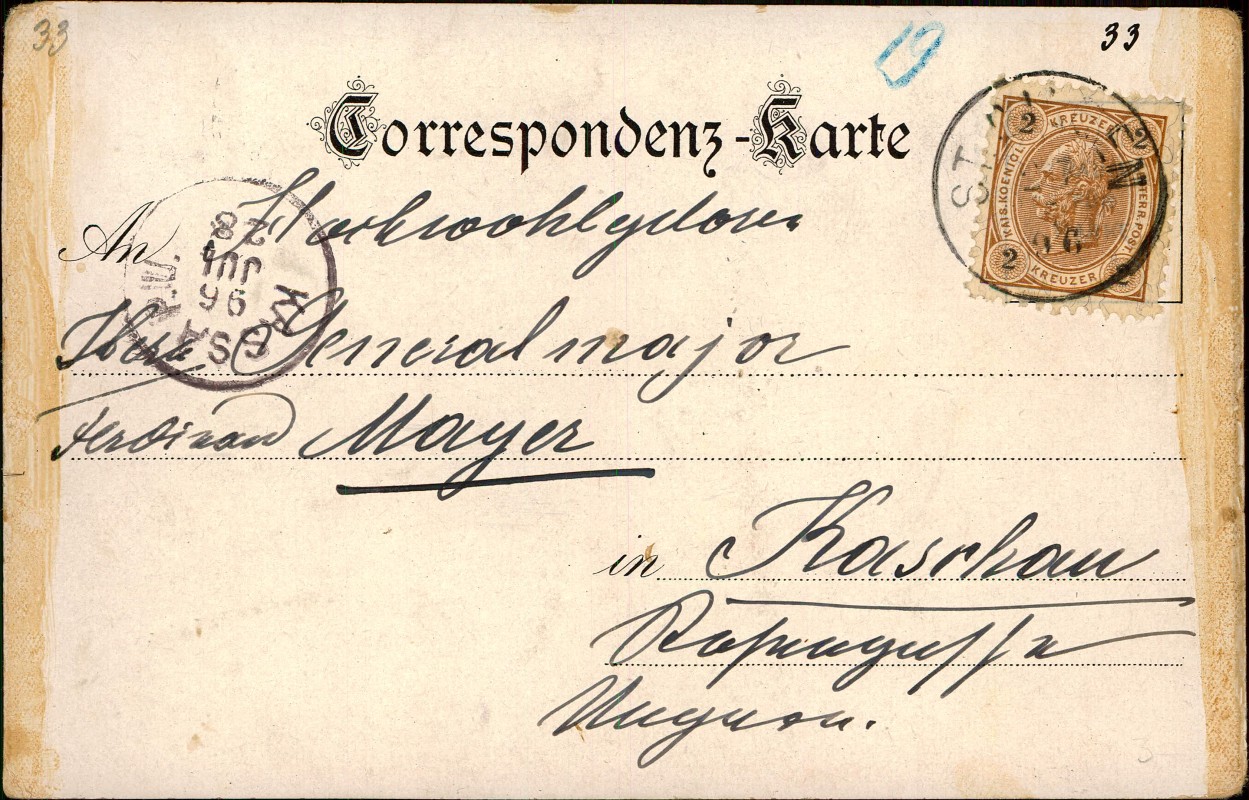 33
19
33
Correspondenz-Karte
2 KREUZER 2
KAIS. KOENIGL. HERR. POST
2 KREUZER 2
ST.
96
KASSA
P.U.
96
JUL
28
An Hochwohlgeboren
Herrn Generalmajor
Ferdinand Mayer
in Kaschau
Ungarn.